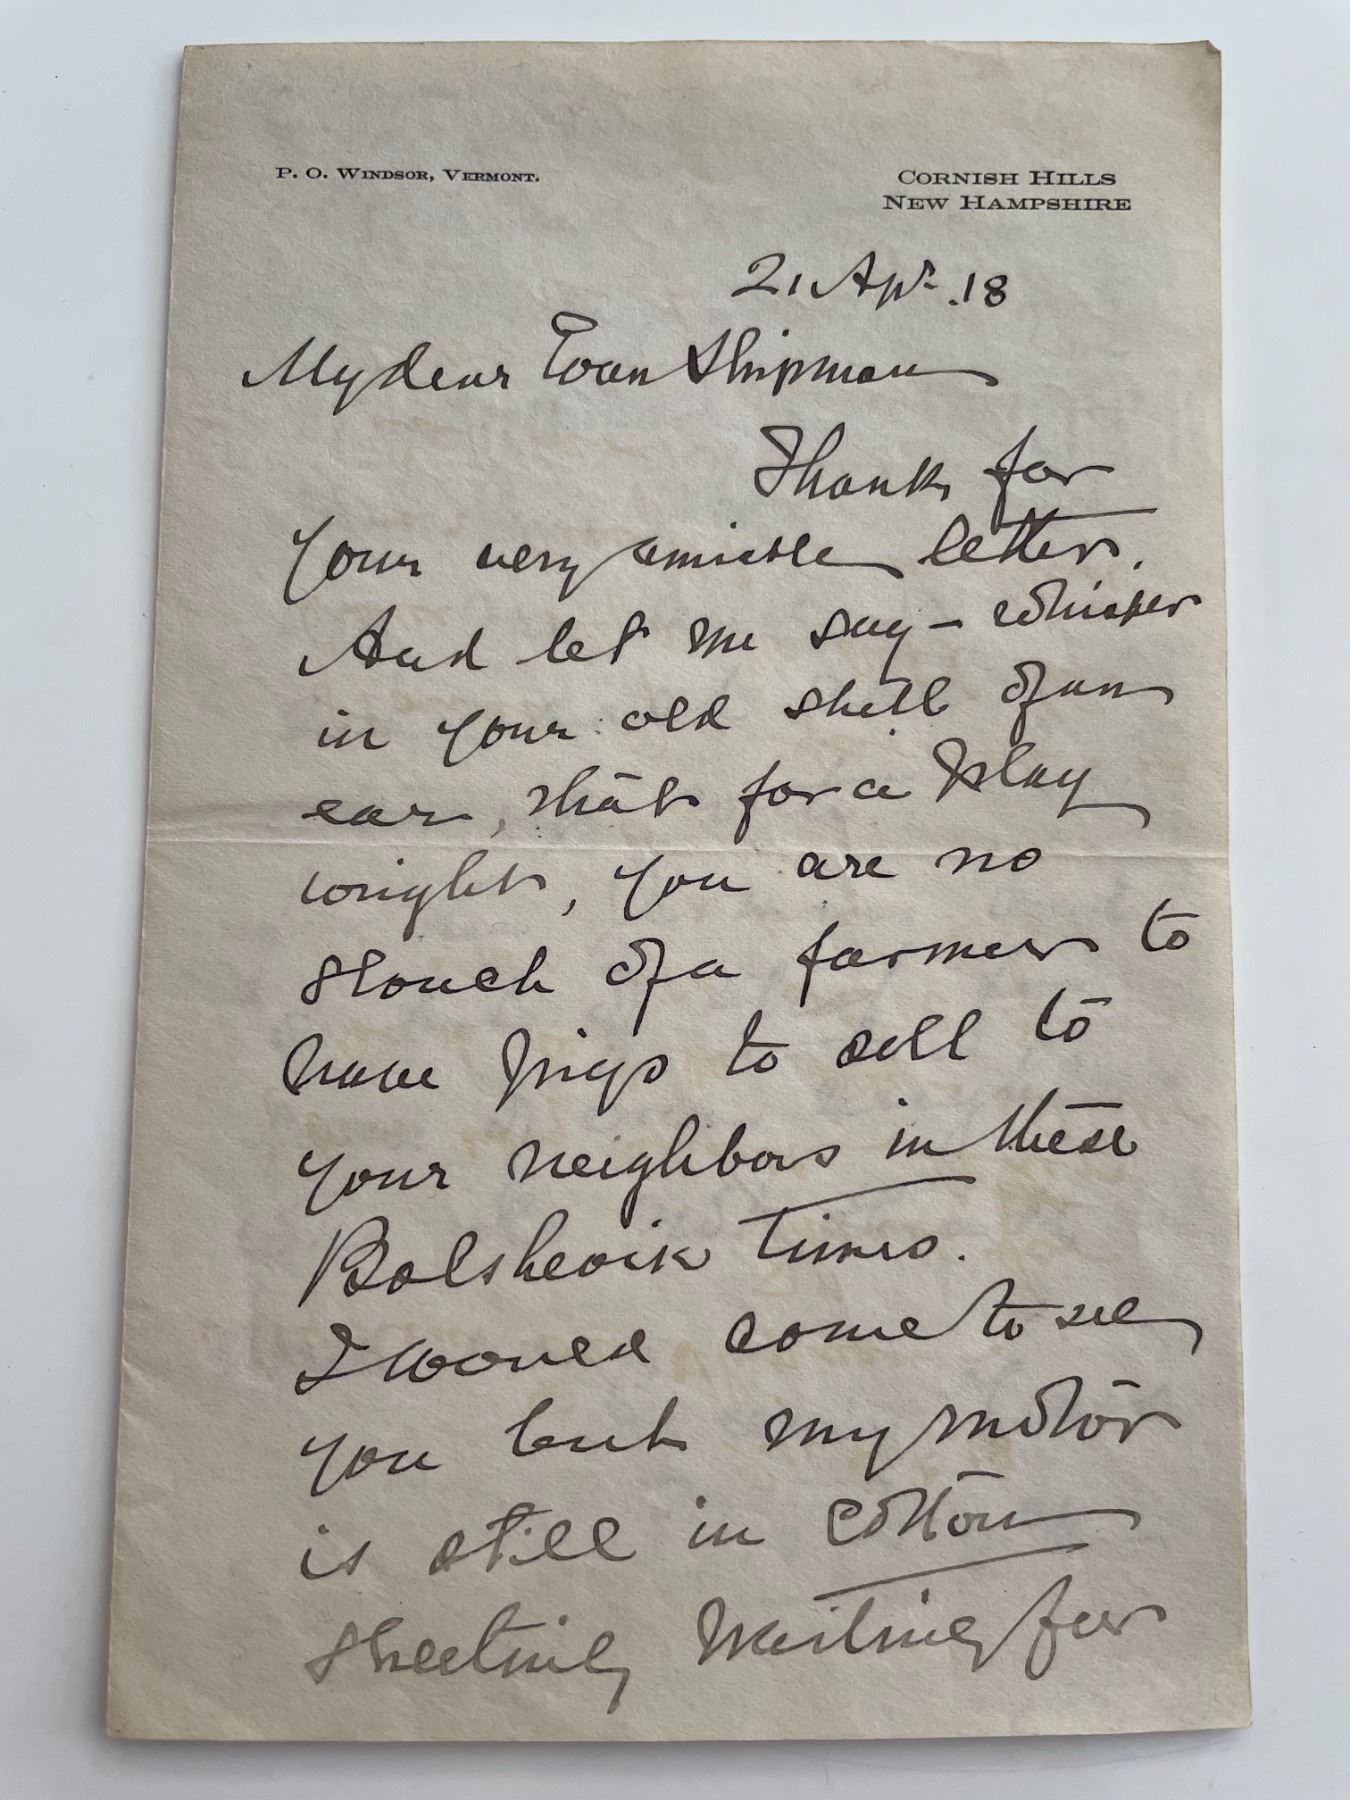 P. O. WINDSOR, VERMONT.
CORNISH HILLS
NEW HAMPSHIRE
21 Apr. 18
My dear Evan Shipman
Thanks for
your very amiable letter.
And let me say — whisper
in your old shell of an
ear, that for a play
wright, you are no
slouch of a farmer to
have pigs to sell to
your neighbors in these
Bolshevik times.
I would come to see
you but my motor
is still in cotton
sheeting waiting for